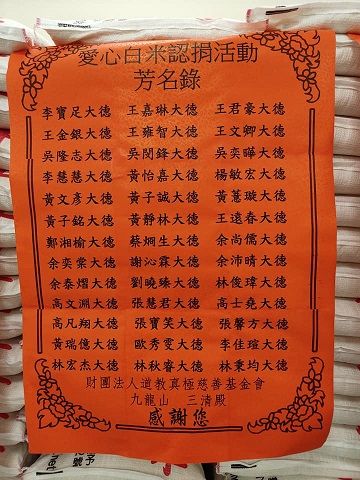 愛心白米認捐活動
芳名錄
李寶足大德 王嘉琳大德 王君豪大德
王金銀大德 王雍智大德 王文卿大德
吳隆志大德 吳閔鋒大德 吳奕曄大德
李慧慧大德 黃怡嘉大德 楊敏宏大德
黃文彥大德 黃子誠大德 黃薏璇大德
黃子銘大德 黃靜林大德 王遠春大德
鄭湘榆大德 蔡烱生大德 余尚儒大德
余奕棠大德 謝沁霖大德 余沛晴大德
余泰熠大德 劉曉臻大德 林俊瑋大德
高文淵大德 張慧君大德 高士堯大德
高凡翔大德 張寶笑大德 張馨方大德
黃瑞億大德 歐秀雯大德 李佳瑄大德
林宏杰大德 林秋睿大德 林秉均大德
財團法人道教真極慈善基金會
九龍山 三清殿
感謝您